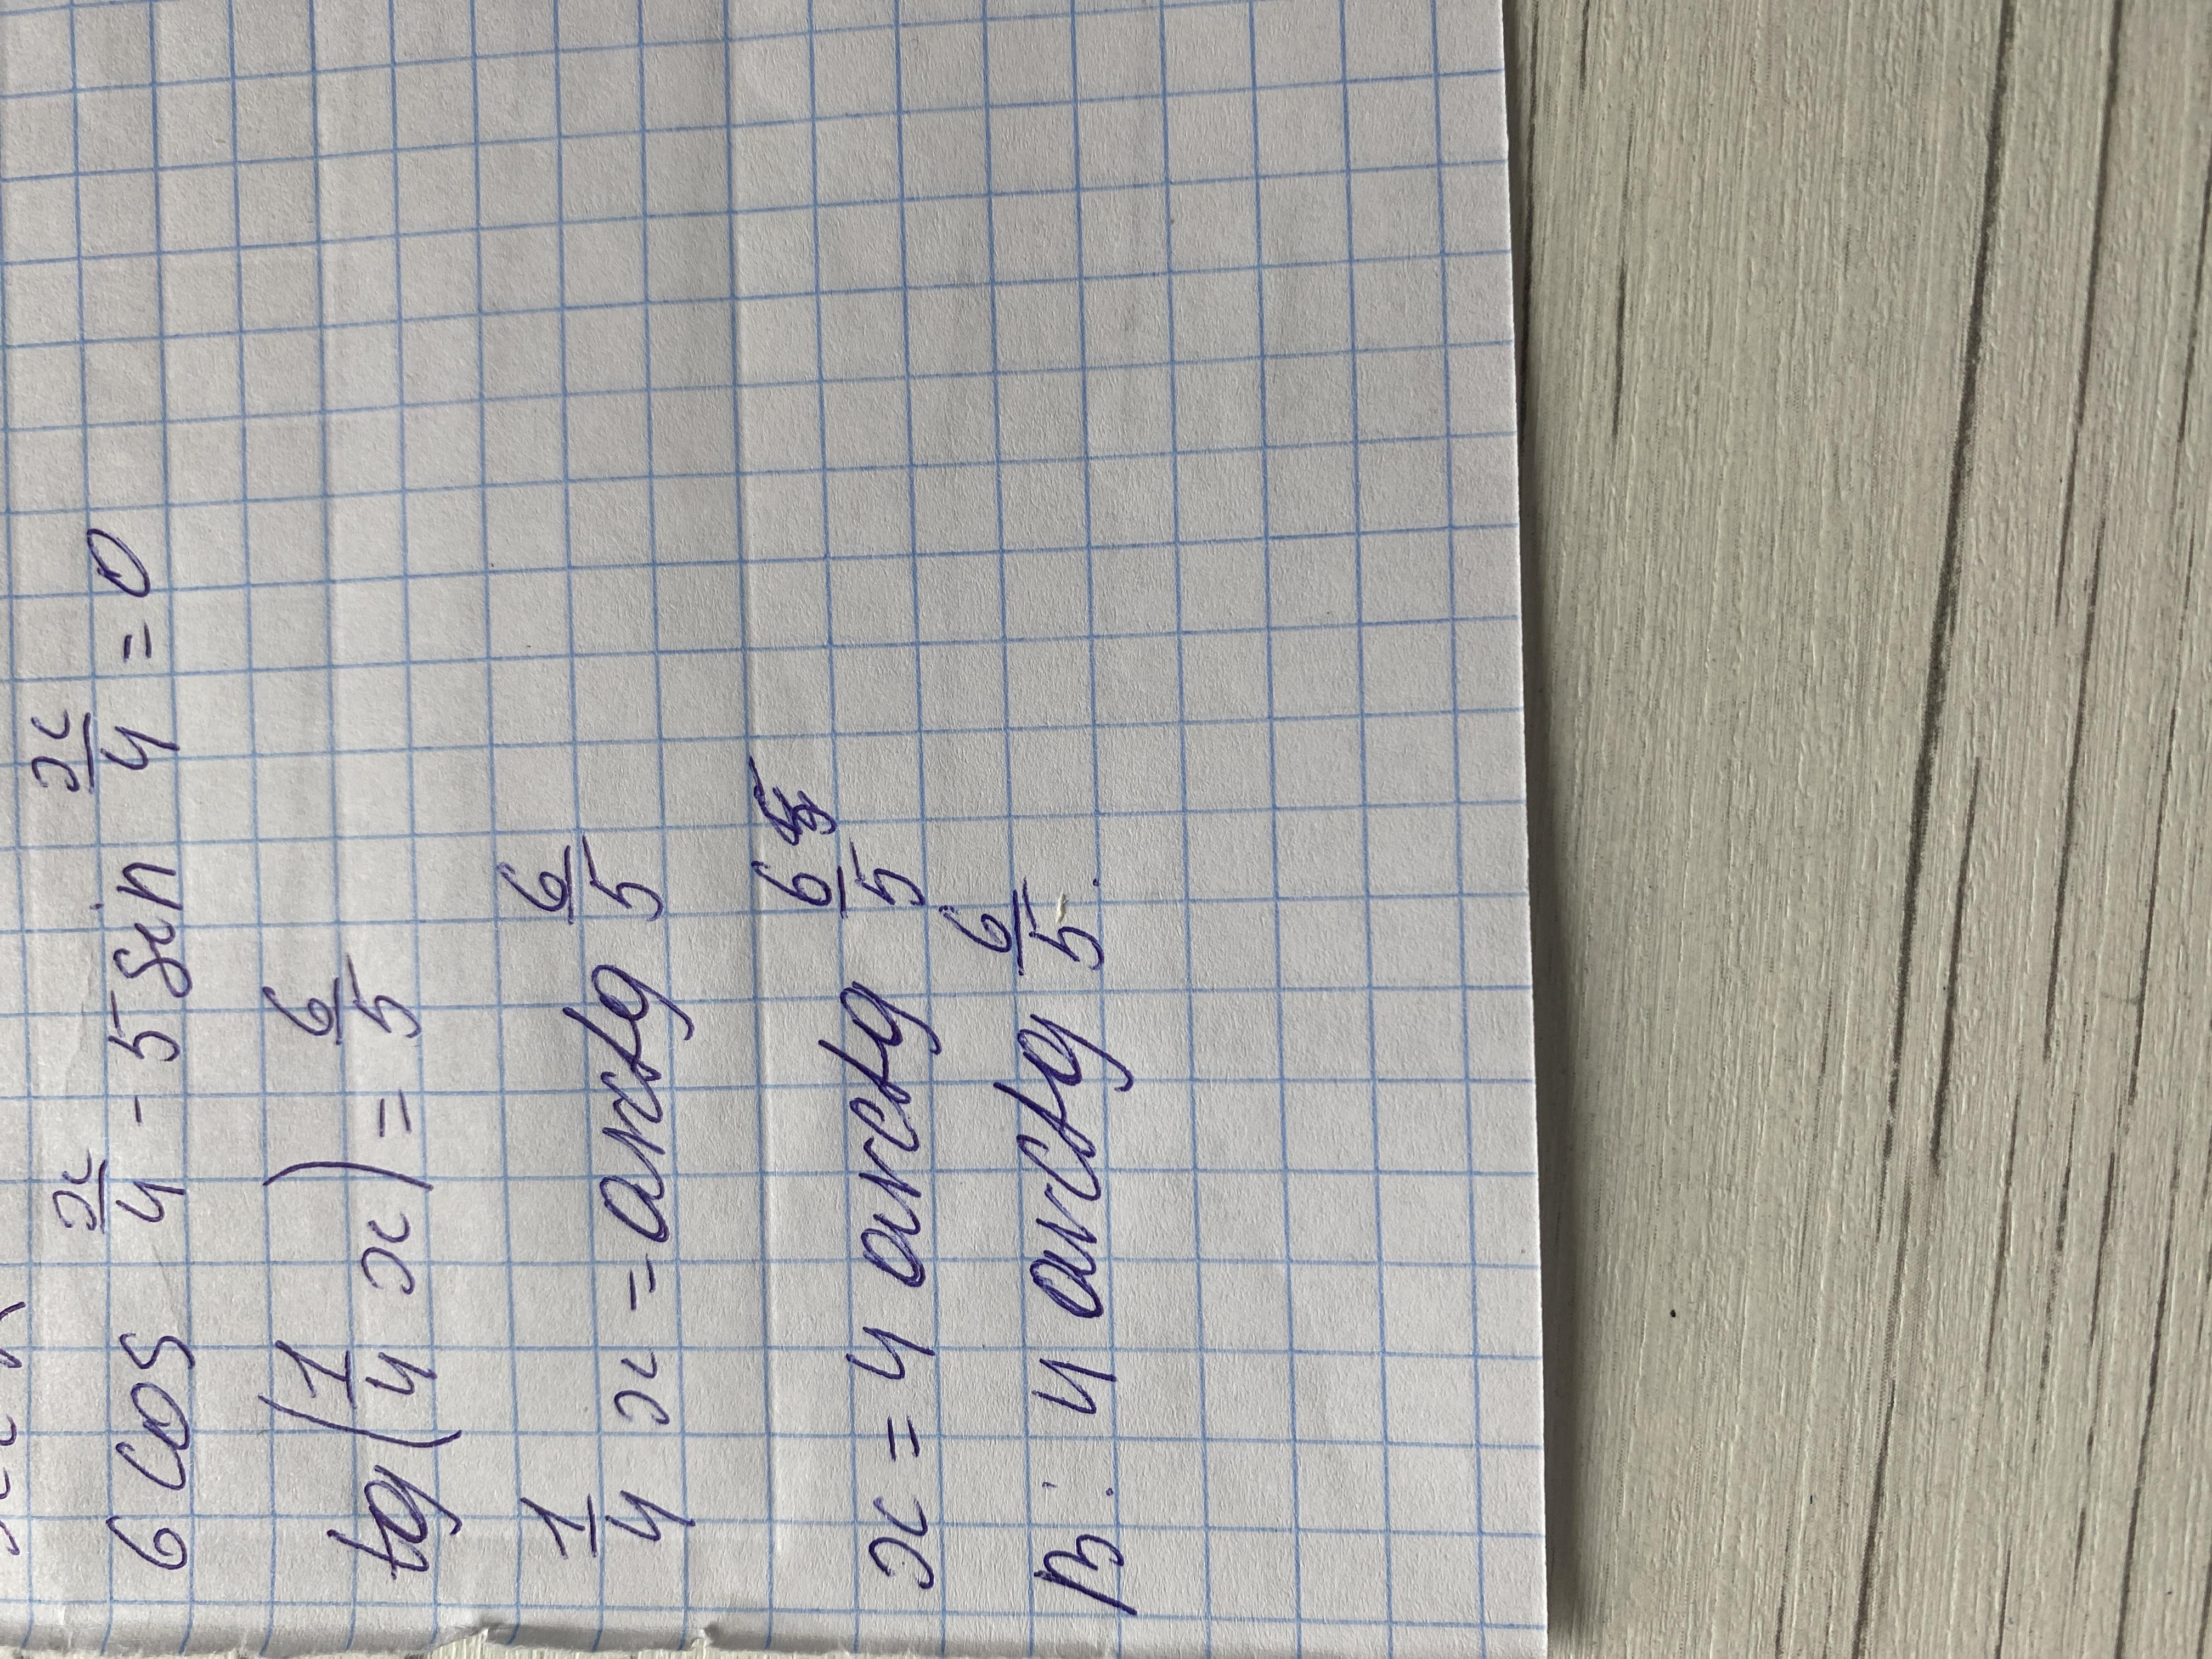 6 cos x/4 - 5 sin x/4 = 0
tg(1/4 x) = 6/5
1/4 x = arctg 6/5
x = 4 arctg 6/5
В: 4 arctg 6/5.